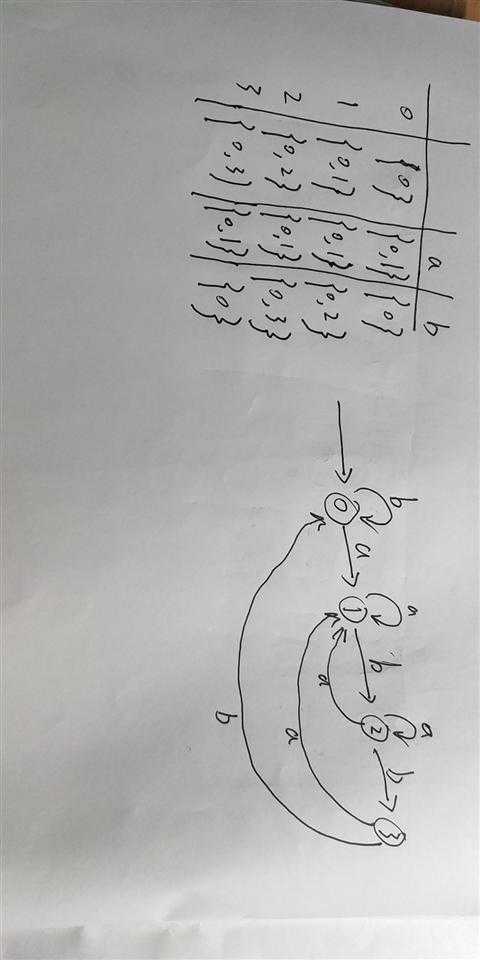 a b
0 {0} {0,1} {0}
1 {0,1} {0,1} {0,2}
2 {0,2} {0,1} {0,3}
3 {0,3} {0,1} {0}
b a a
a b b
0 1 2 3
a
a
b